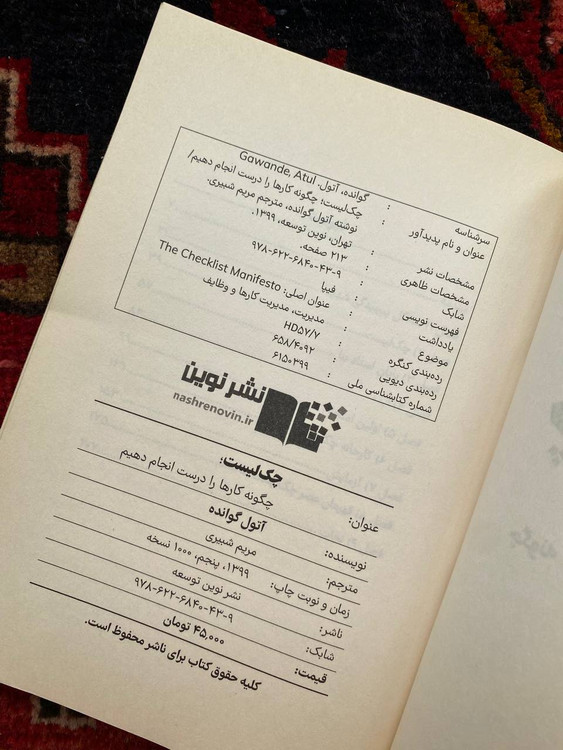 سرشناسه : گوانده، آتول. Gawande, Atul
عنوان و نام پدیدآور : چک‌لیست؛ چگونه کارها را درست انجام دهیم/
نوشته آتول گوانده، مترجم مریم شبیری.
مشخصات نشر : تهران، نوین توسعه، ۱۳۹۹.
مشخصات ظاهری : ۲۱۳ صفحه.
شابک : ۹۷۸-۶۲۲-۶۸۴۰-۴۳-۹
فهرست نویسی : فیپا
یادداشت : عنوان اصلی: The Checklist Manifesto
موضوع : مدیریت، مدیریت کارها و وظایف
رده‌بندی کنگره : HD۵۷/۷
رده‌بندی دیویی : ۶۵۸/۴۰۹۲
شماره کتابشناسی ملی : ۶۱۵۰۳۹۹
نشر نوین
nashrenovin.ir
عنوان: چک‌لیست؛
چگونه کارها را درست انجام دهیم
نویسنده: آتول گوانده
مترجم: مریم شبیری
زمان و نوبت چاپ: ۱۳۹۹، پنجم، ۱۰۰۰ نسخه
ناشر: نشر نوین توسعه
شابک: ۹۷۸-۶۲۲-۶۸۴۰-۴۳-۹
قیمت: ۴۵,۰۰۰ تومان
کلیه حقوق کتاب برای ناشر محفوظ است.